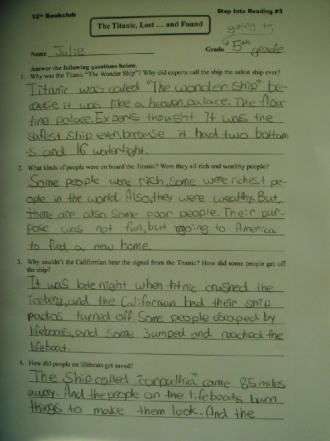 12th Bookclub
Step Into Reading #3
The Titanic, Lost ... and Found
going to
Name Julie
Grade 5th grade
Answer the following questions below.
1. Why was the Titanic "The Wonder Ship"? Why did experts call the ship the safest ship ever?
Titanic was called "The wonder ship" be-
cause it was like a heaven, palace. The floa-
ting palace. Experts thought It was the
safest ship ever, because it had two bottom
s and 16 watertight.
2. What kinds of people were on board the Titanic? Were they all rich and wealthy people?
Some people were rich, some were richest pe-
ople in the world. Also, they were wealthy. But,
there are also some poor people. Their pur-
pose was not fun, but going to America
to find a new home.
3. Why wouldn't the Californian hear the signal from the Titanic? How did some people get off
the ship?
It was late night when titnic crashed the
iceberg, and the Californian had their ship
radios turned off. Some people escaped by
lifeboats, and some Jumped and reached the
lifeboat.
4. How did people on lifeboats get saved?
The ship called "carpalhia" came 85 miles
away. And the people on the lifeboats burn
things to make them look. And the